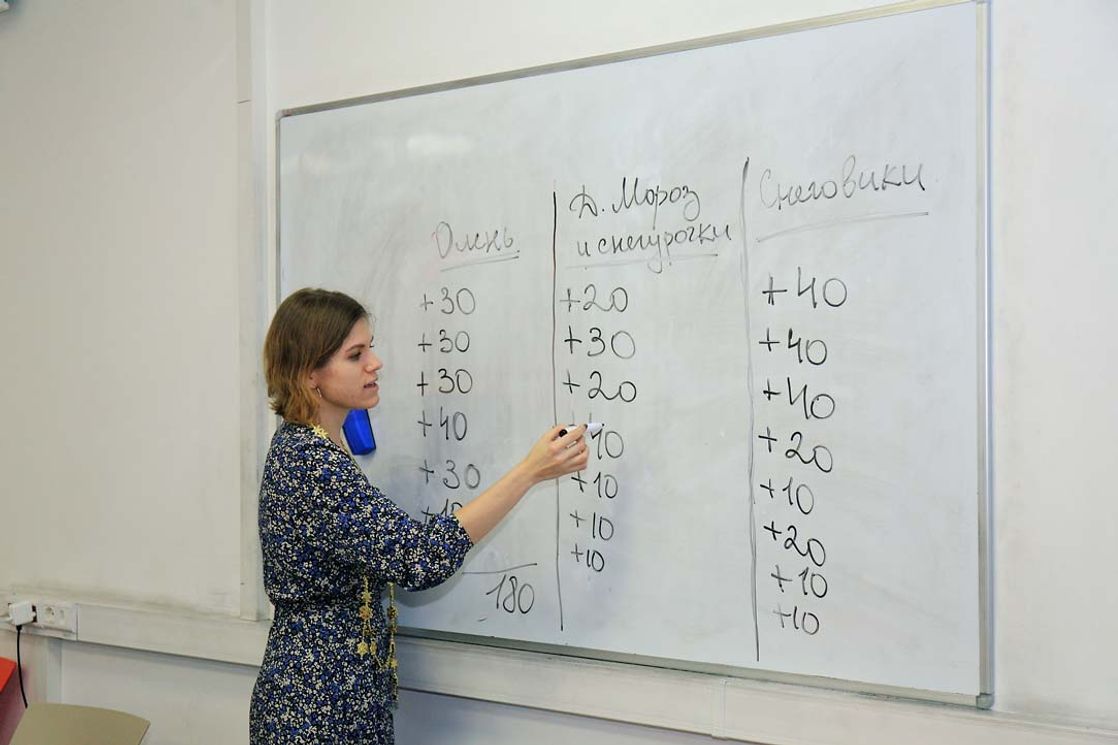 Олень
+30
+30
+30
+40
+30
+10
180
Д. Мороз
и снегурочки
+20
+30
+20
+10
+10
+10
+10
Снеговики
+40
+40
+40
+20
+10
+20
+10
+10